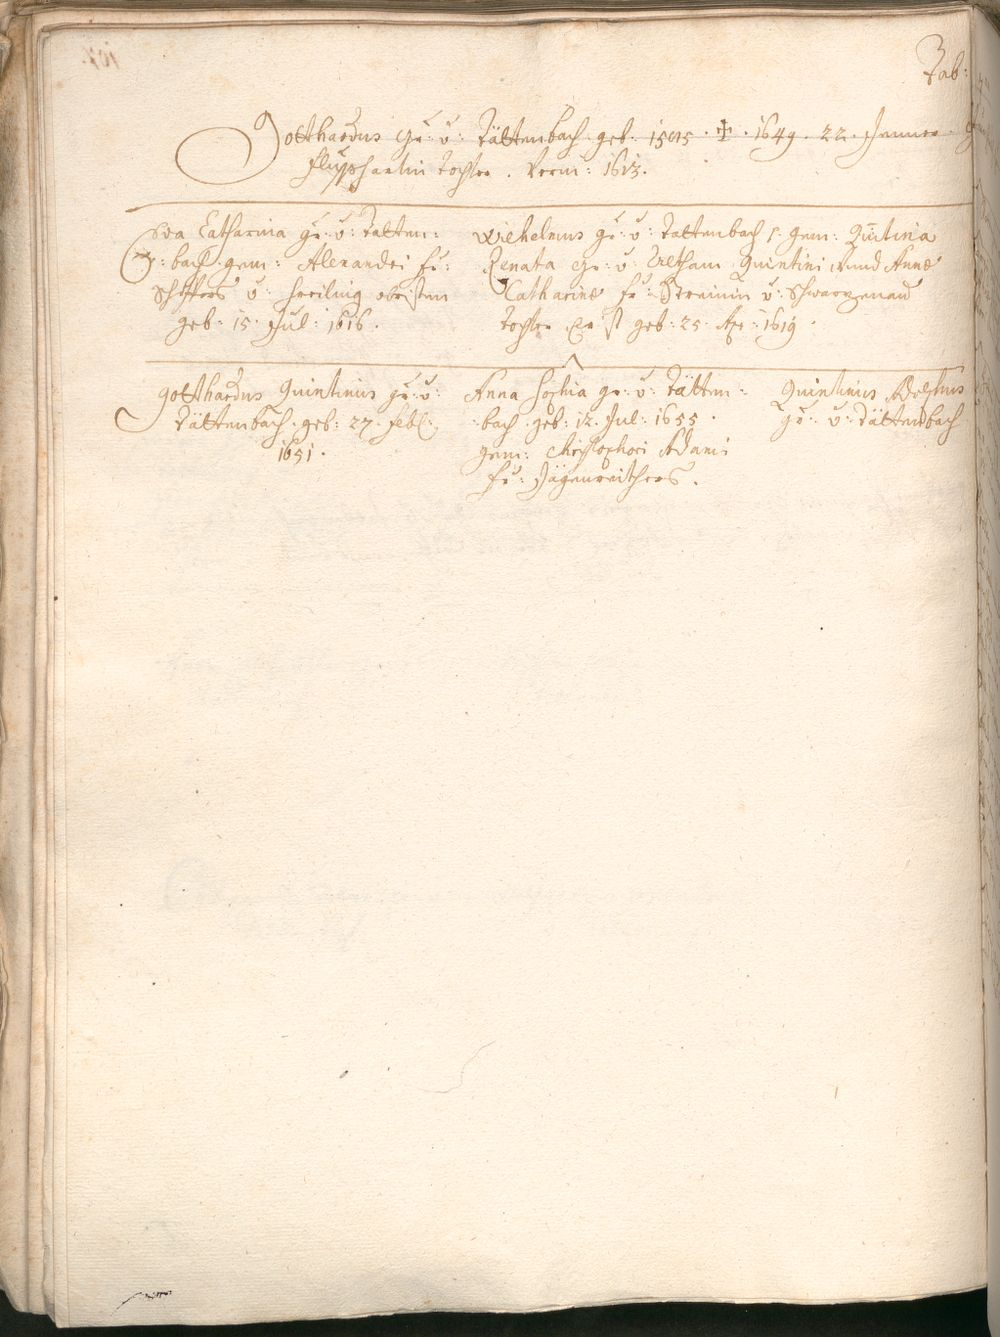 Tab:
Gotthardus Gr: v: Tättenbach geb. 1585 · ✝ · 1649 · 22 · Jenner ·
tochter . verm: 1613.
Eva Catharina gr: v: Tatten:
bach gem: Alexandri fr:
Schiffers v: freiling obristen
geb: 15 · Jul: 1616 ·
Wilhelmus gr: v: Tattenbach gem: Quitina
Renata Gr: v: Altham Quintini vnnd Annæ
Catharinæ fr: v: Schwarzenau
tochter Er ist geb: 25 Apr: 1619 ·
gotthardus Quintinus gr: v:
Tättenbach geb: 27 febr:
1651 ·
Anna Sophia gr: v: Tätten:
bach geb: 12 Jul: 1655 ·
gem: Christophori Adami
fr: Jägenreithers .
Quintinus Adolphus
gr: v: Tättenbach